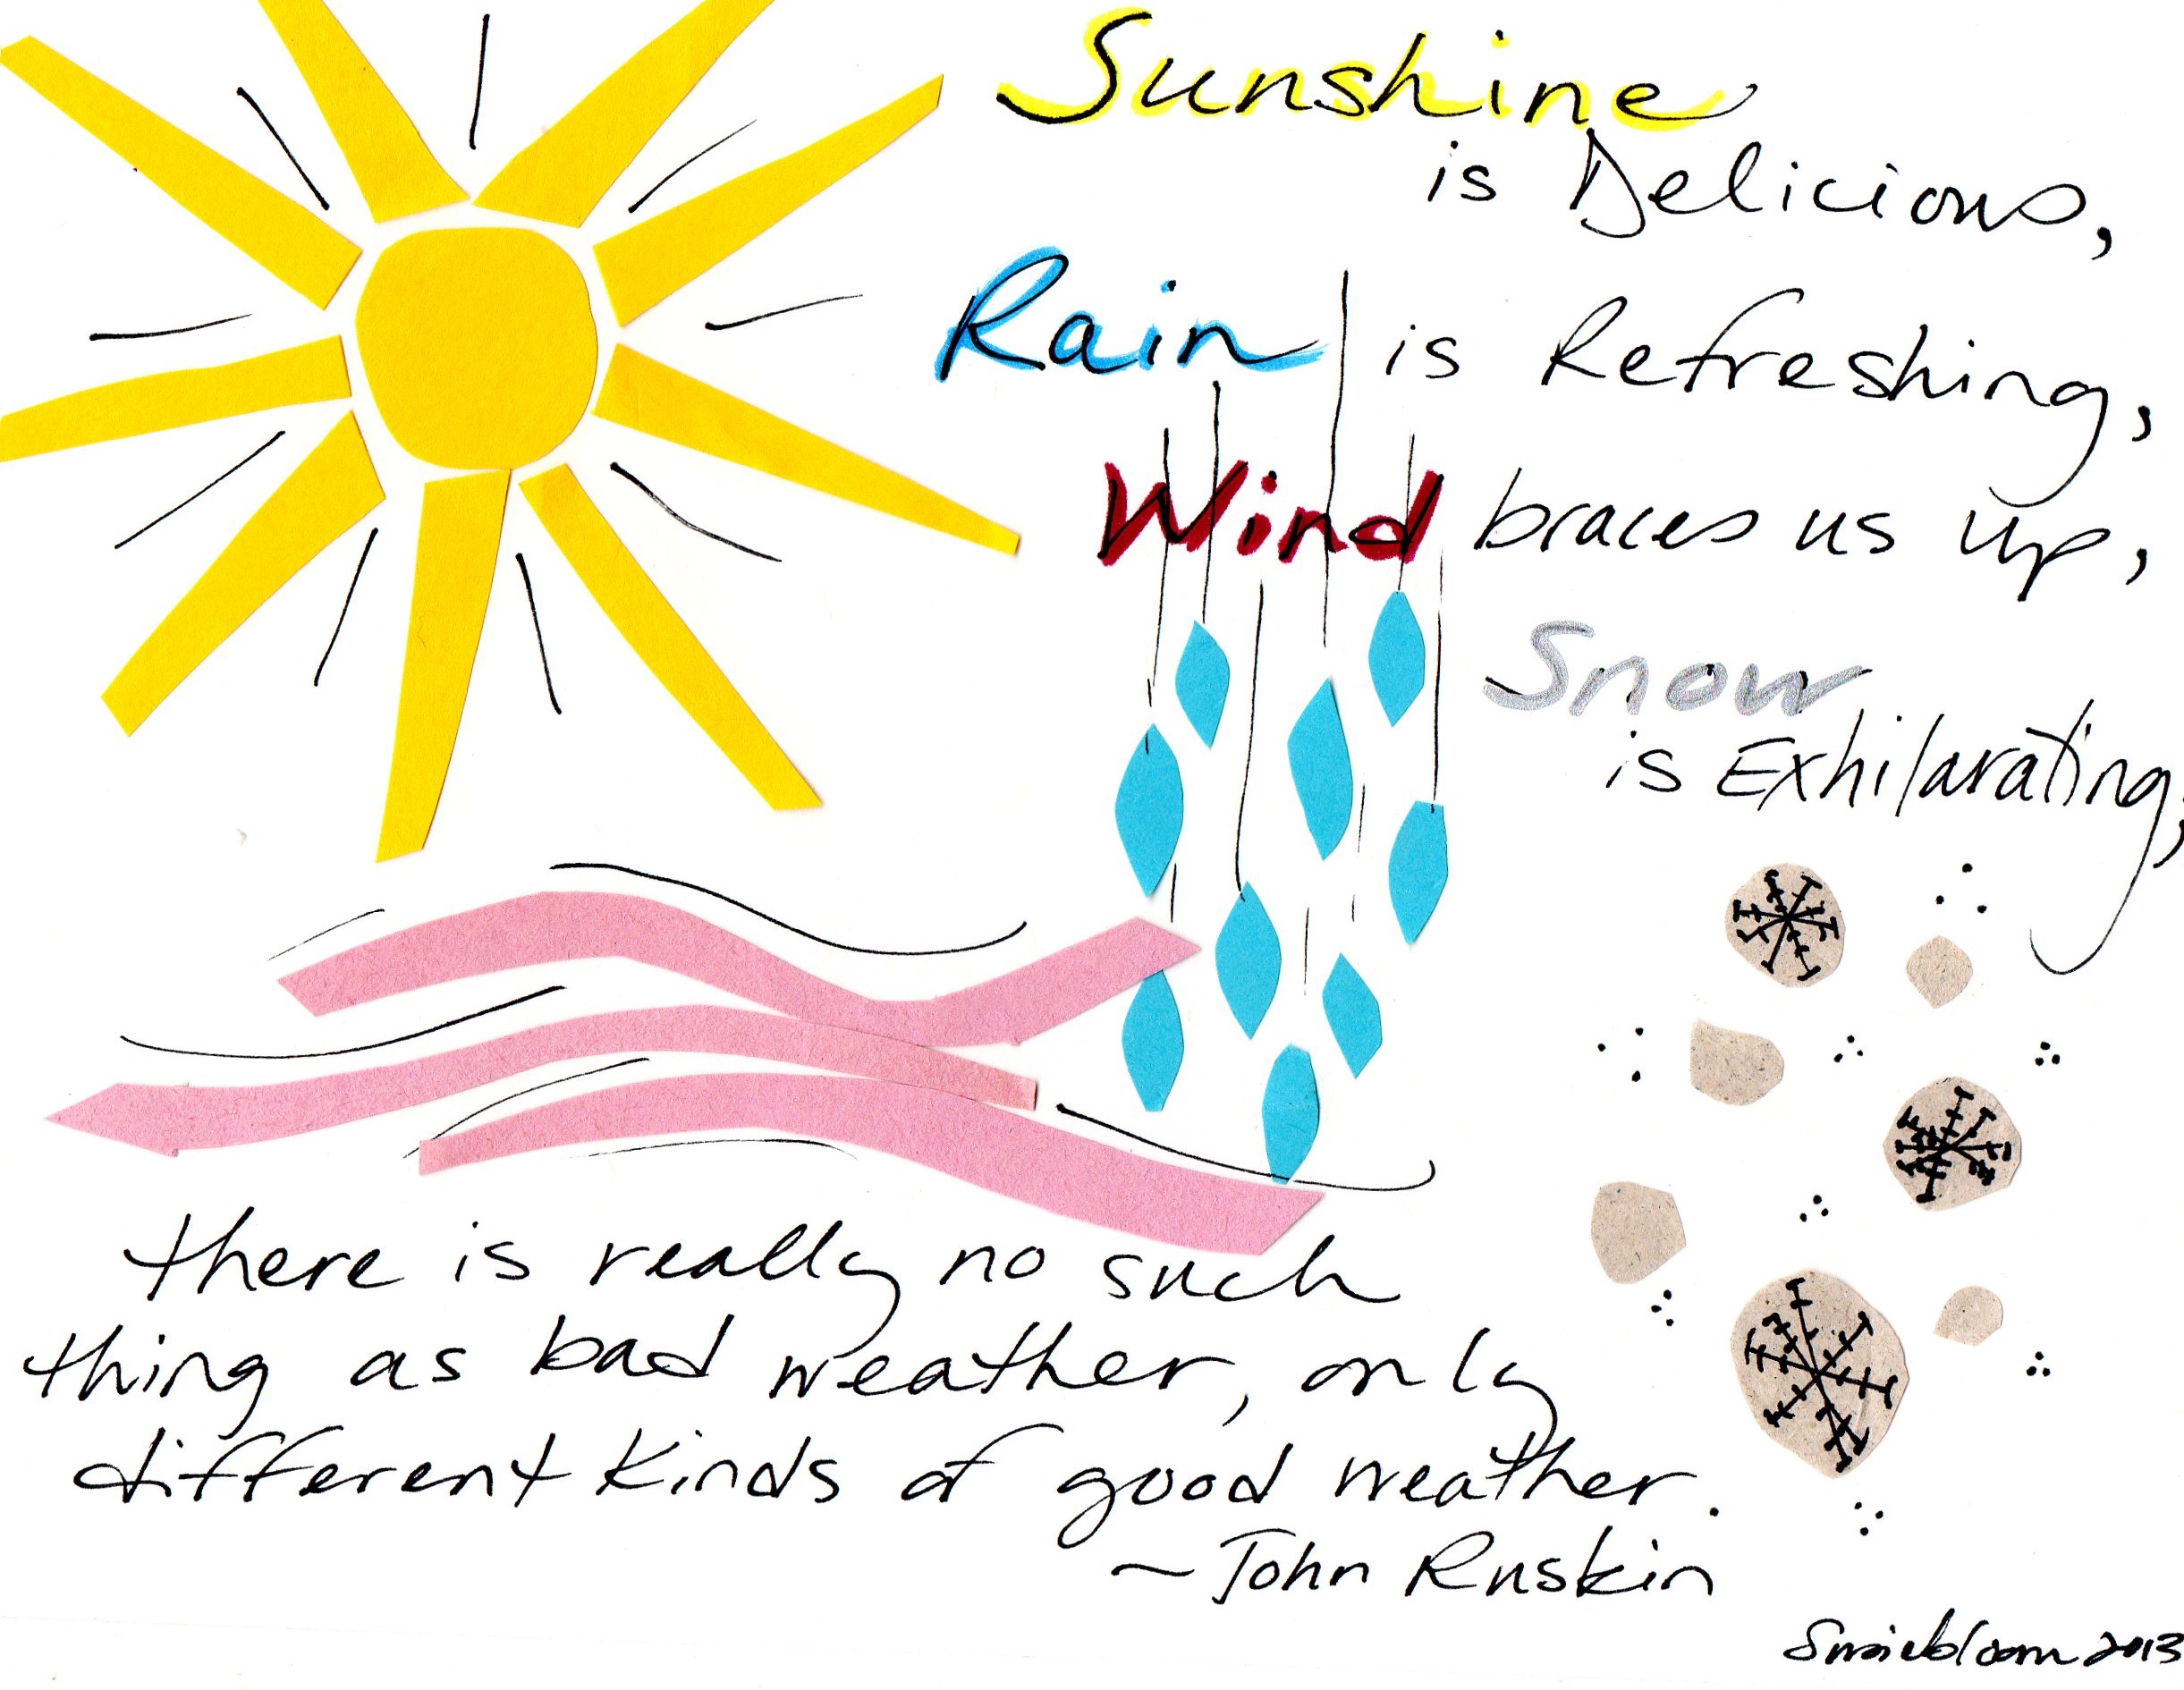 Sunshine
is Delicious,
Rain is Refreshing,
Wind braces us up,
Snow
is Exhilarating,
there is really no such
thing as bad weather, only
different kinds of good weather.
~John Ruskin
Susiebloom 2013